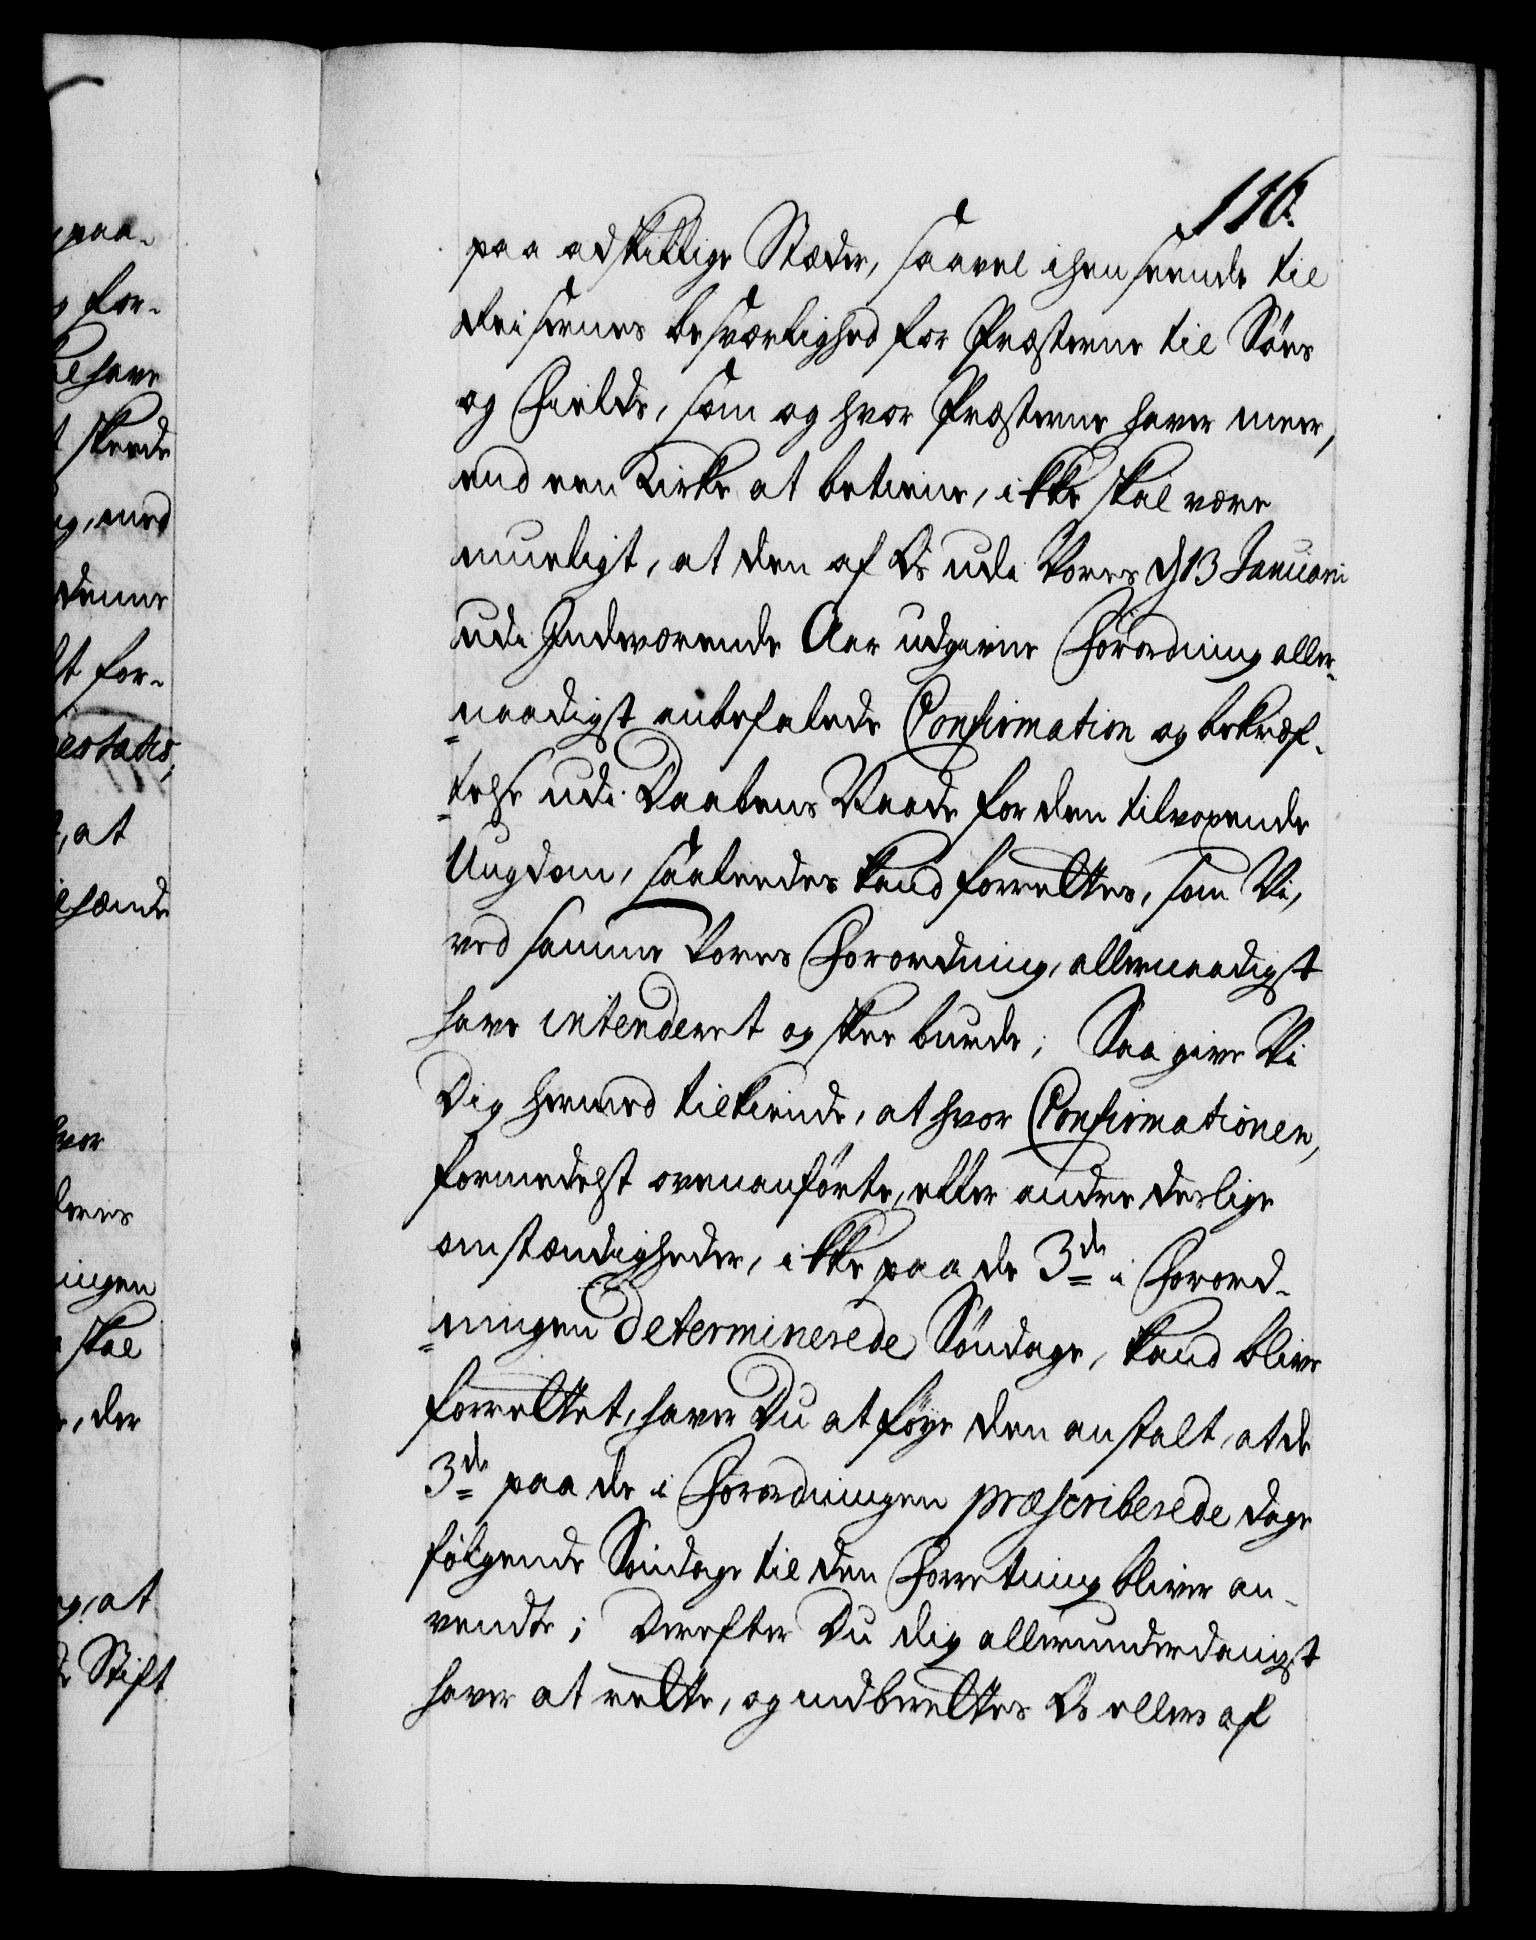 116.
paa adskillige Stæder, saavel i henseende til
Reisernes besværlighed for Præsterne til Søes
og Fields, som og hvor Præsterne haver meer,
end een Kirke at betiene, ikke skal være
mueligt, at den af Os udi Vores d 13 Januarii
udi Indeværende Aar udgivne Forordning aller-
naadigst anbefalede Confirmation og bekræf-
telse udi Daabens Naade for den tilvoxende
Ungdom, saaledes kand forrettes, som Vi,
ved samme Vores Forordning, allernaadigst
have intenderet og skee burde; Saa give Vi
Dig hermed tilkiende, at hvor Confirmationen,
formedelst ovenanførte, eller andre deslige
omstændigheder, ikke paa de 3de i Forord-
ningen determinerede Søndage, kand blive
forrettet, haver Du at føye den anstalt, at de
3de paa de i Forordningen præscriberede dage
følgende Søndage til den Forretning bliver an-
vendte; Derefter Du dig allerunderdanigst
haver at rette, og indberettes Os ellers af
paa-
for-
have
skeede
med
denne
for-
at
hvor
deres
ingen
skal
der
at
Stift